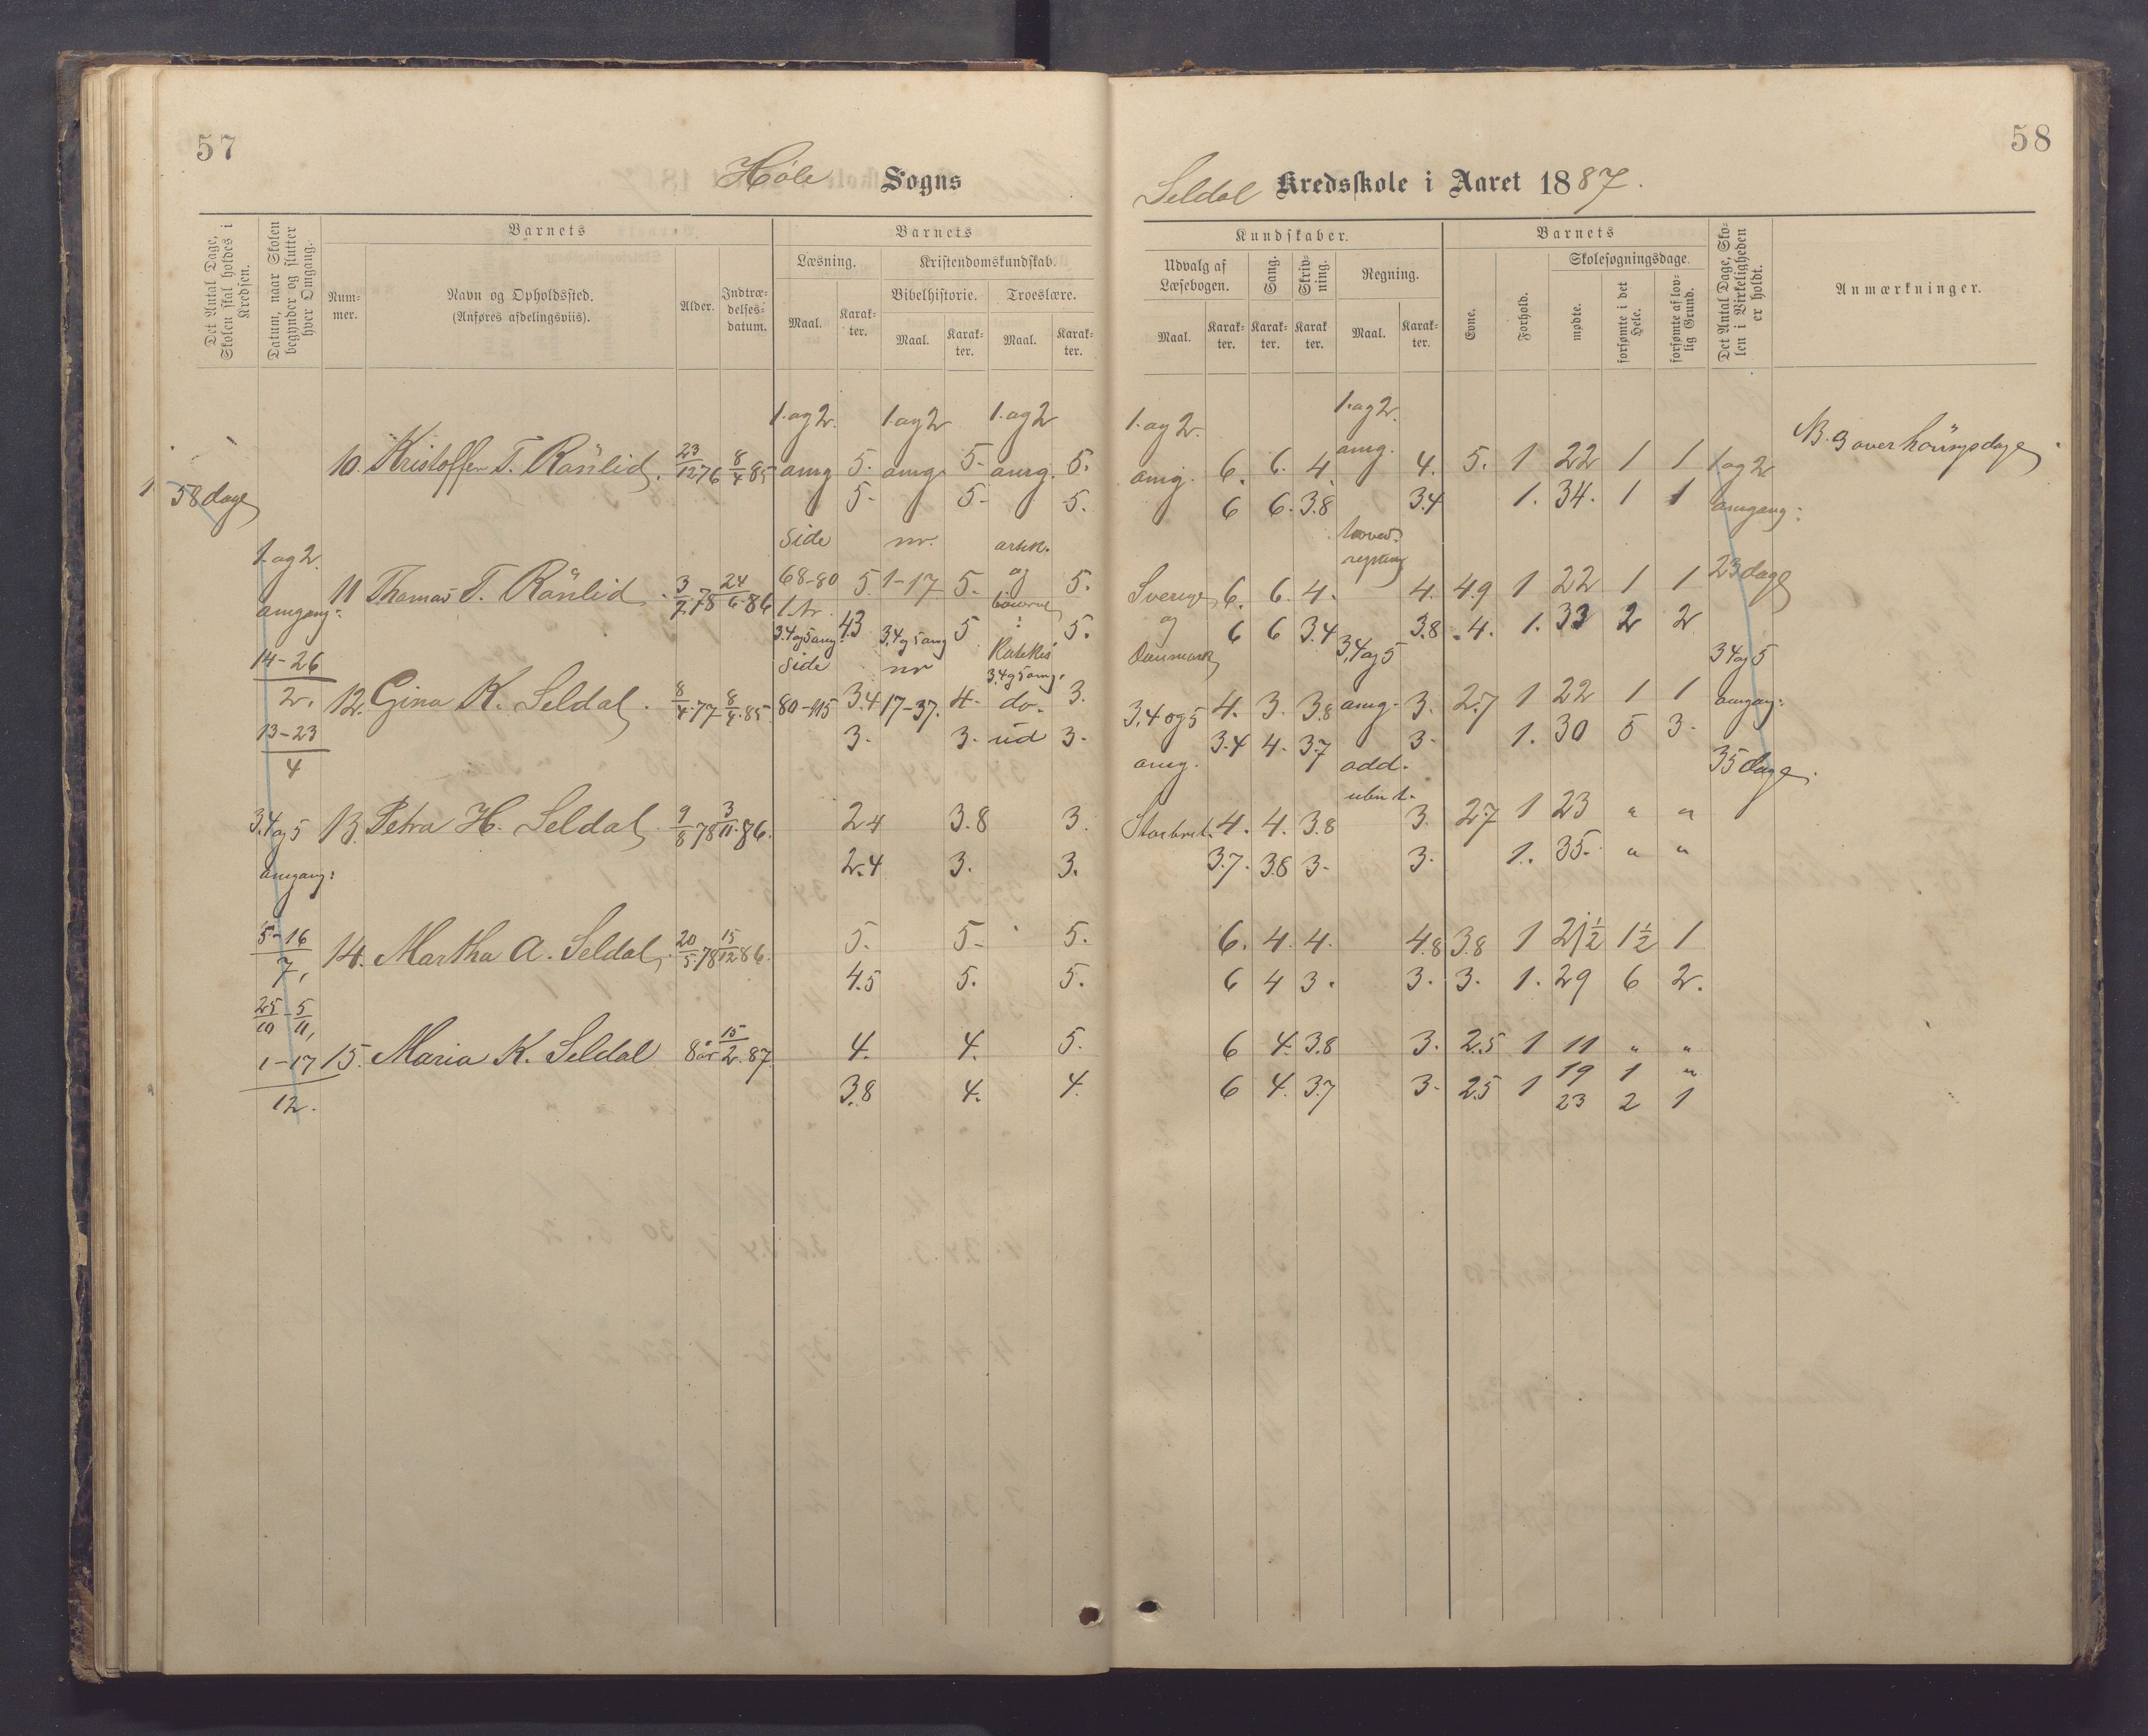 57
Høle Sogns
Det Antal Dage, Skolen skal holdes i Kredsen.
Datum, naar Skolen begynder og slutter hver Omgang.
Barnets
Num-
mer.
Navn og Opholdssted.
(Anføres afdelingsviis).
Alder.
Indtræ-
delses-
datum.
Barnets
Læsning.
Kristendomskundskab.
Bibelhistorie.
Troeslære.
Maal.
Karak-
ter.
Maal.
Karak-
ter.
Maal.
Karak-
ter.
1. og 2. 1. og 2 1. og 2
10. Kristoffer T. Rånlid. 23/12 76 8/4 85 omg 5. omg. 5- omg. 5.
58 dage 5- 5- 5.
side nr. artik.
1. og 2. og
11 Thomas T. Rånlid. 3/7. 78 24/6. 86 68-80 5. 1-17 5. 5.
omgang: 4.3 3.4 og 5 omg 5 5.
14-26 side nr 3.4 og 5 omg.
2. 12. Gina K. Seldal. 8/4. 77 8/4. 85 80-115 3.4 17-37. 4. do. 3.
13-23 3. 3. ud 3.
4
3.4 og 5 13. Petra H. Seldal. 9/8 78 3/11. 86. 2.4 3.8 3.
omgang: 2.4 3. 3.
5-16
7, 14. Martha A. Seldal. 20/5. 78 15/12 86. 5. 5- 5.
4.5 5. 5.
25/10 - 5/11,
1-17 15. Maria K. Seldal 8 år 15/2. 87. 4. 4. 5.
12. 3.8 4. 4.
58
Seldal Kredsskole i Aaret 1887.
Kundskaber.
Udvalg af
Læsebogen.
Sang.
Skriv-
ning.
Regning.
Maal.
Karak-
ter.
Karak-
ter.
Karak
ter.
Maal.
Karak-
ter.
Barnets
Evne.
Forhold.
Skolesøgningsdage.
mødte.
forsømte i det Hele.
forsømte af lov-
lig Grund.
Det Antal Dage, Sko-
len i Virkeligheden
er holdt.
Anmærkninger.
1. og 2. 1. og 2.
omg. 6. 6. 4. omg. 4. 5. 1 22 1 1 1. og 2
6 6. 3.8 3.4 1. 34. 1 1 omgang:
Sverige 6. 6. 4. 4. 4.9 1 22 1 1 23 dage
og 6 6 3.4 3.8 4. 1. 33 2 2
Danmark 3,4 og 5 3 4 og 5
3,4 og 5 4. 3. 3.8 omg. 3. 2.7 1 22 1 1 omgang:
omg. 3.4 4. 3.7 3. 1. 30 5 3.
add. 35 dage.
4. 4. 3.8 3. 2.7 1 23 " "
3.7. 3.8 3. 3. 1. 35. " "
6. 4. 4. 4.8 3.8 1 21½ 1½ 1
6 4 3. 3. 3. 1. 29 6 2.
6 4. 3.8 3. 2.5 1 11 " "
19 1 "
6 4. 3.7 3. 2.5 1 23 2 1